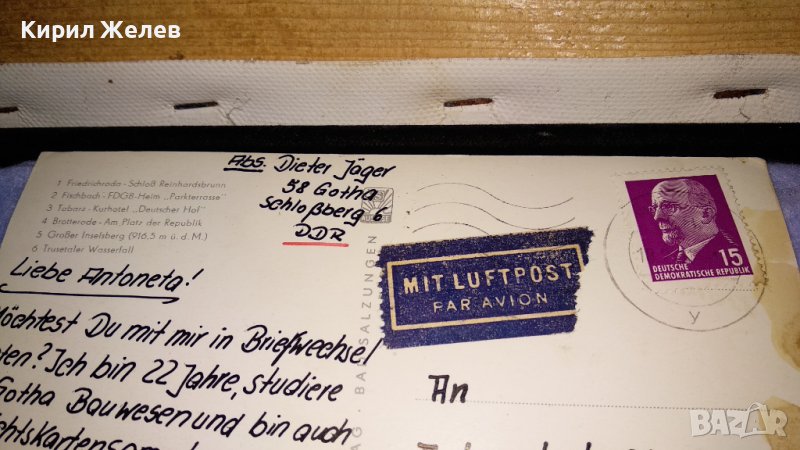 Кирил Желев
Abs. Dieter Jäger
58 Gotha
Schloßberg 6
DDR
1 Friedrichroda - Schloß Reinhardsbrunn
2 Fischbach - FDGB-Heim „Parkterrasse"
3 Tabarz - Kurhotel „Deutscher Hof"
4 Brotterode - Am Platz der Republik
5 Großer Inselsberg (916,5 m ü. d. M.)
6 Trusetaler Wasserfall
Liebe Antoneta!
Möchtest Du mit mir in Briefwechsel
ten? Ich bin 22 Jahre, studiere
Gotha Bauwesen und bin auch
BAD SALZUNGEN
MIT LUFTPOST
PAR AVION
15
DEUTSCHE
DEMOKRATISCHE REPUBLIK
y
An
BAZAR